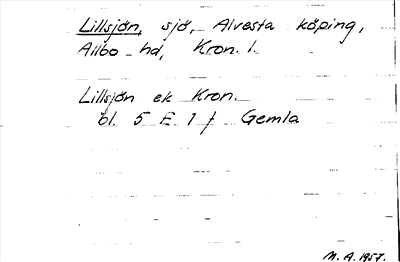 Lillsjön, sjö, Alvesta köping,
Allbo hd, Kron. l.
Lillsjön ek Kron.
bl. 5 E 1 f Gemla
M. A. 1957.